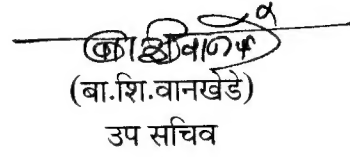 (बा.शि.वानखेडे)
उप सचिव